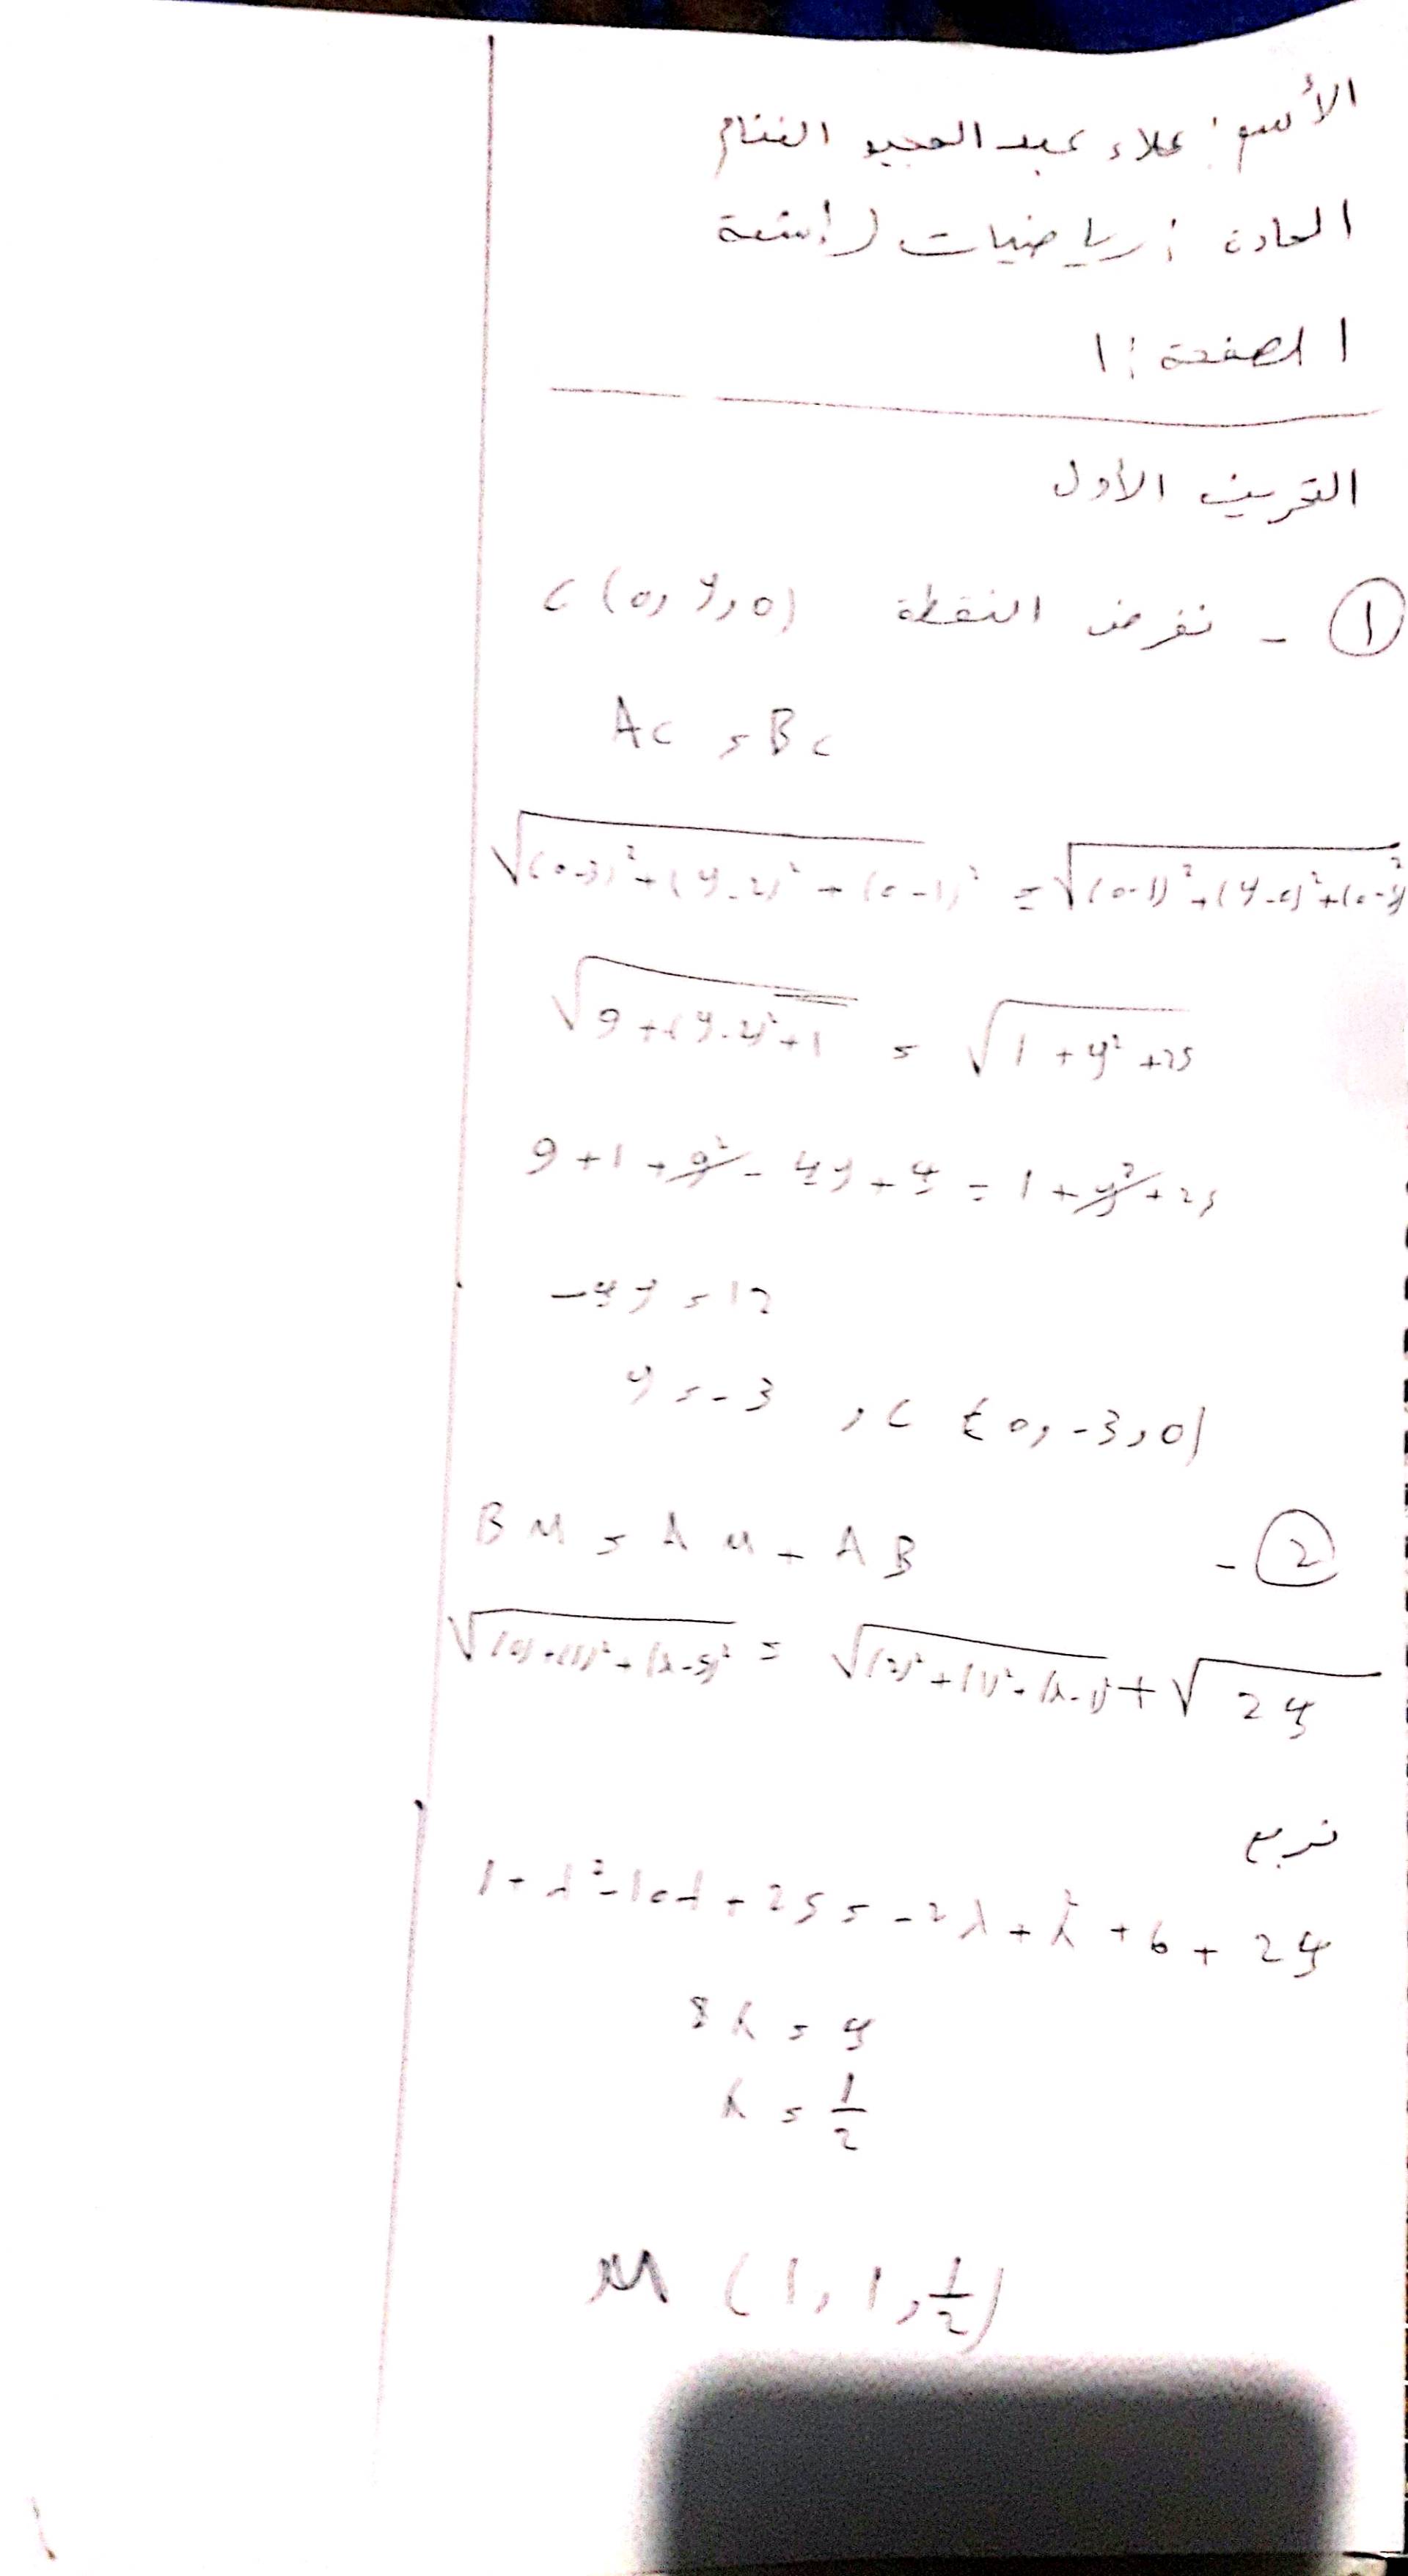 الأسم: علاء عبد المجيد الغنام
المادة: رياضيات (أتمتة
الصفحة: 1
التمرين الأول
① - نفرض النقطة C (0, y, 0)
AC = BC
√((0-3)² + (y-2)² + (0-1)²) = √((0-1)² + (y-0)² + (0-5)²
√(9 + (y-2)² + 1) = √(1 + y² + 25)
9 + 1 + y² - 4y + 4 = 1 + y² + 25
-4y = 12
y = -3 , C (0, -3, 0)
② - BM = AM + AB
√((0) + (1)² + (λ-5)²) = √((2)² + (1)² + (λ-1)²) + √24
نربع
1 + λ² - 10λ + 25 = -2λ + λ² + 6 + 24
8λ = 4
λ = 1/2
M (1, 1, 1/2)